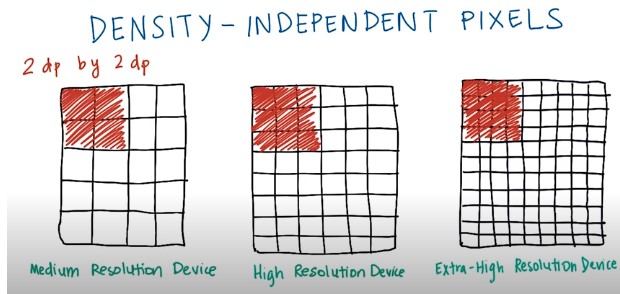 DENSITY-INDEPENDENT PIXELS
2 dp by 2 dp
Medium Resolution Device
High Resolution Device
Extra-High Resolution Device